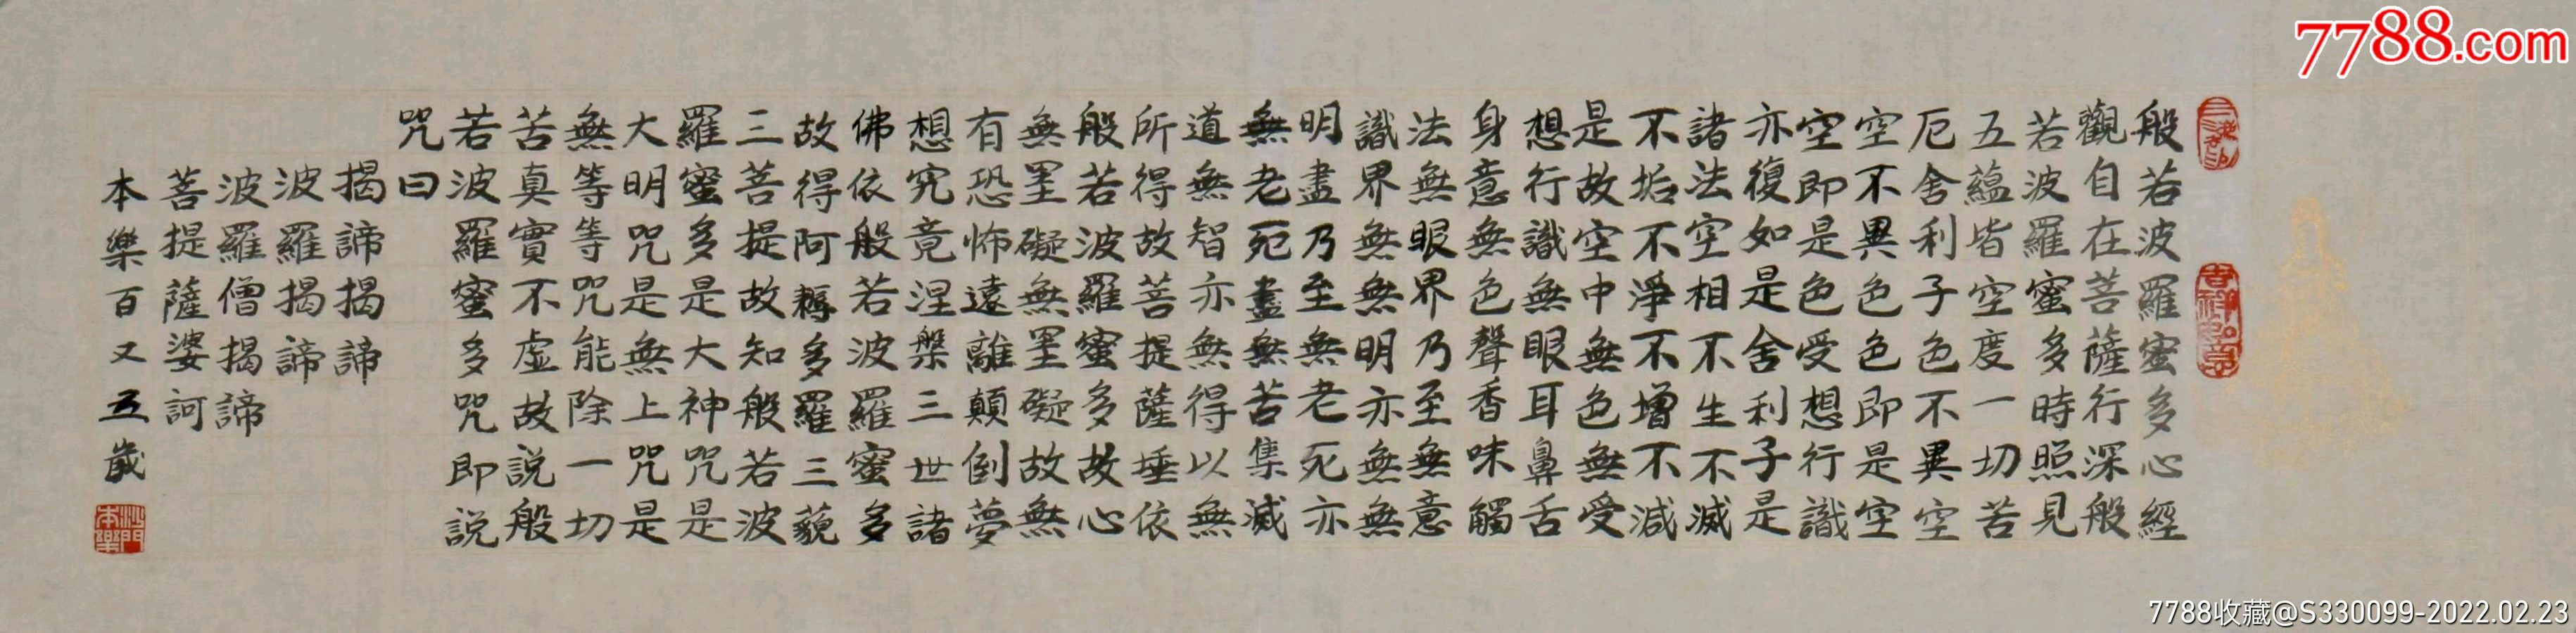 7788.com
吉祥如意
般若波羅蜜多心經
觀自在菩薩行深般
若波羅蜜多時照見
五蘊皆空度一切苦
厄舍利子色不異空
空不異色色即是空
空即是色受想行識
亦復如是舍利子是
諸法空相不生不滅
不垢不淨不增不減
是故空中無色無受
想行識無眼耳鼻舌
身意無色聲香味觸
法無眼界乃至無意
識界無無明亦無無
明盡乃至無老死亦
無老死盡無苦集滅
道無智亦無得以無
所得故菩提薩埵依
般若波羅蜜多故心
無罣礙無罣礙故無
有恐怖遠離顛倒夢
想究竟涅槃三世諸
佛依般若波羅蜜多
故得阿耨多羅三藐
三菩提故知般若波
羅蜜多是大神咒是
大明咒是無上咒是
無等等咒能除一切
苦真實不虛故說般
若波羅蜜多咒即說
咒曰
揭諦揭諦
波羅揭諦
波羅僧揭諦
菩提薩婆訶
本樂百又五歲
沙門本樂
7788收藏@S330099-2022.02.23